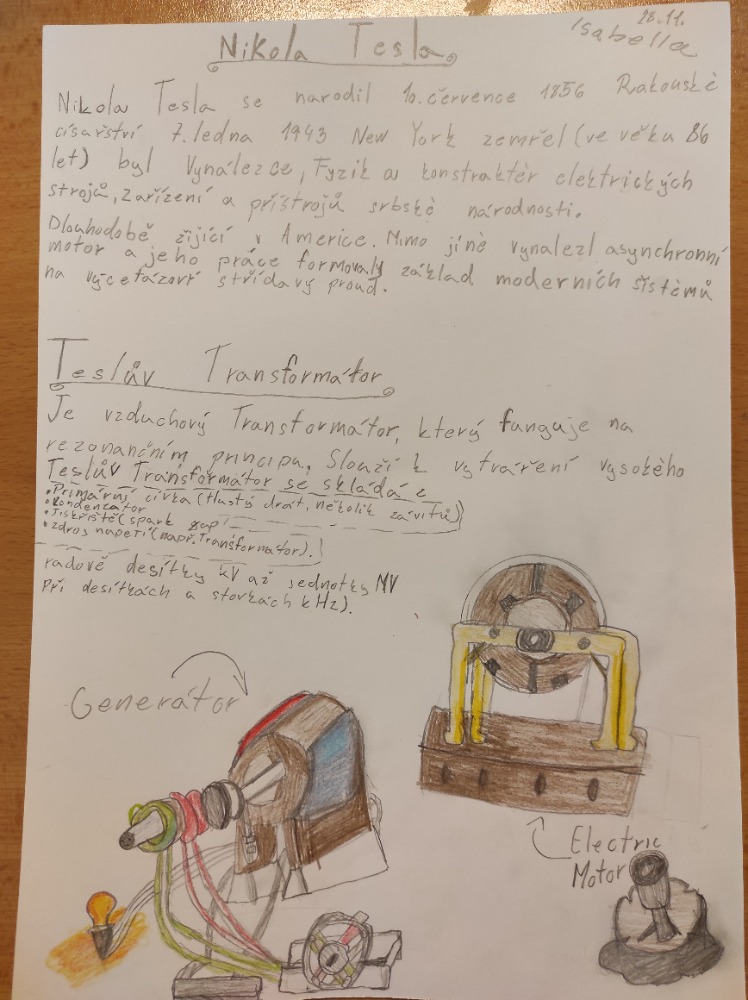 28.11.
Isabella
Nikola Tesla
Nikola Tesla se narodil 10. července 1856 Rakouské
císařství 7. ledna 1943 New York zemřel (ve věku 86
let) byl Vynálezce, Fyzik a konstruktér elektrických
strojů, zařízení a přístrojů srbské národnosti.
Dlouhodobě žijící v Americe. Mimo jiné vynalezl asynchronní
motor a jeho práce formovaly základ moderních sistémů
na výcefázoví střídavý proud.
Teslův Transformátor
Je vzduchový Transformátor, který funguje na
rezonančním principu. Slouží k vytváření vysokého
Teslův Transformátor se skládá z
• Primární cívka (tlustý drát, několik závitů)
• kondenzátor
• Jiskřiště (spark gap
• zdroj napětí (např. Transformátor).
řádově desítky kV až jednotky MV
Při desítkách a stovkách kHz).
Generátor
Electric
Motor